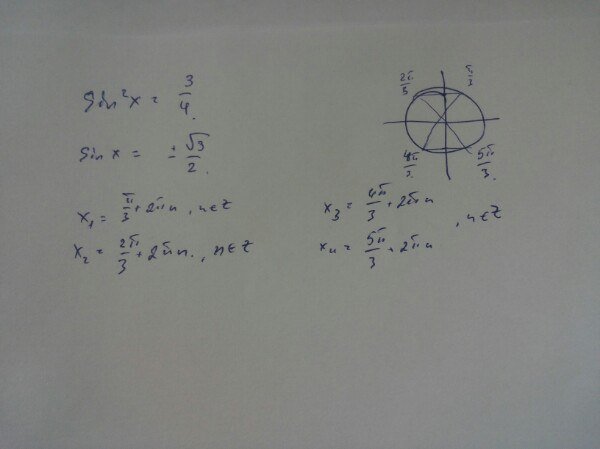 sin²x = 3/4.
sin x = ± √3/2.
x₁ = π/3 + 2πn, n∈Z
x₂ = 2π/3 + 2πn., n∈Z
2π/3 π/3
4π/3 5π/3.
x₃ = 4π/3 + 2πn
, n∈Z
x₄ = 5π/3 + 2πn